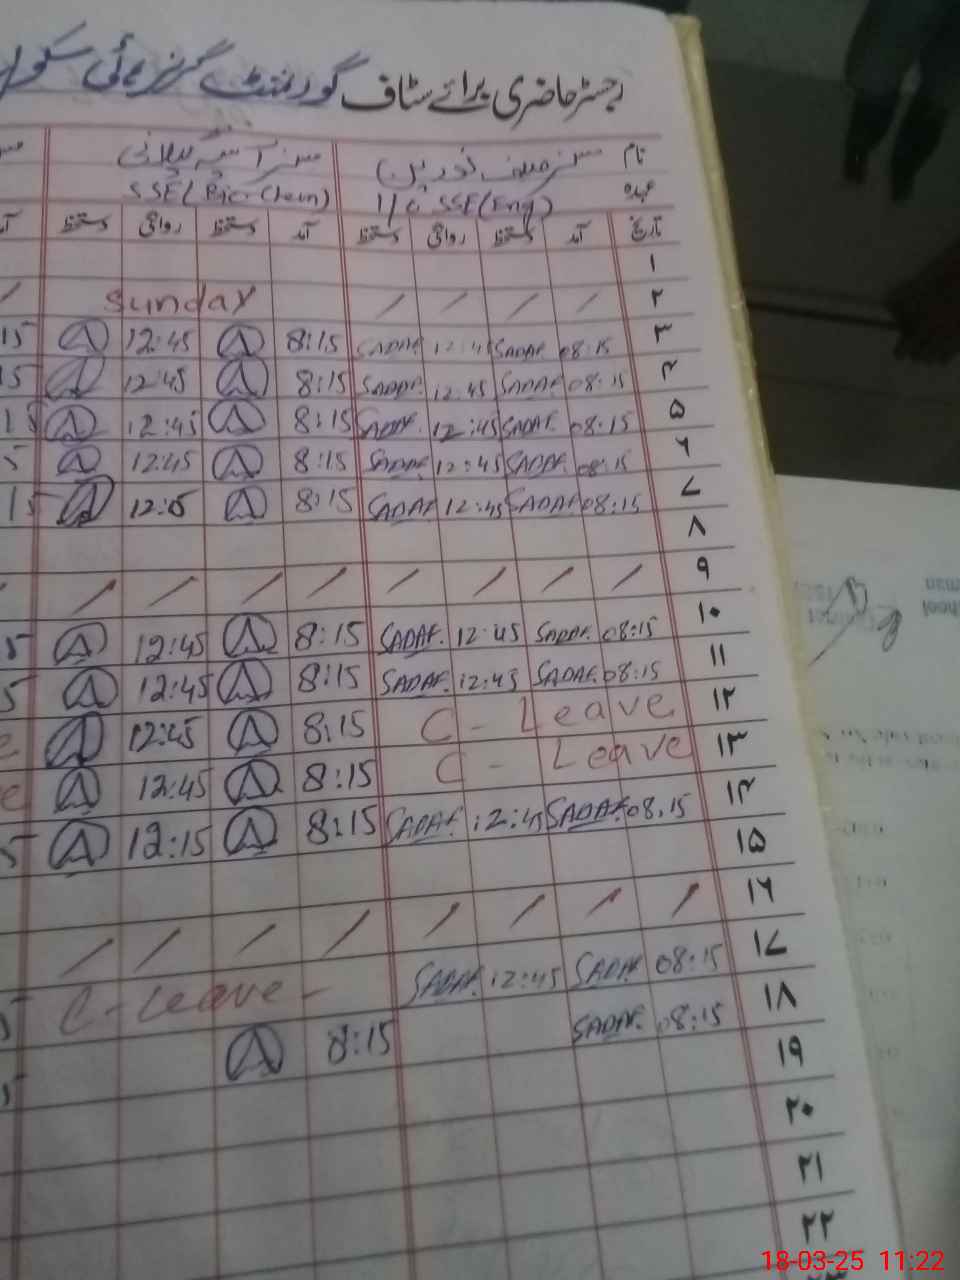 رجسٹر حاضری برائے سٹاف گورنمنٹ گرلز ہائی سکول
نام مسز صدف نورین مسز آسیہ گیلانی
عہدہ I/C SSE(Eng) SSE(
تاریخ آمد دستخط روانگی دستخط آمد دستخط روانگی دستخط
۱
۲ / / / / Sunday /
۳ 08:15 SADAF. 12:45 SADAF. 8:15 A 12:45 A 15
۴ 08:15 SADAF. 12:45 SADAF. 8:15 A 12:45 A 15
۵ 08:15 SADAF. 12:45 SADAF. 8:15 A 12:45 A 15
۶ 08:15 SADAF. 12:45 SADAF. 8:15 A 12:45 A 5
۷ 08:15 SADAF. 12:45 SADAF. 8:15 A A 15
۸
۹ / / / / / / / /
۱۰ 08:15 SADAF. 12:45 SADAF. 8:15 A 12:45 A 5
۱۱ 08:15 SADAF. 12:45 SADAF. 8:15 A 12:45 A 5
۱۲ C - Leave 8:15 A 12:45 A e
۱۳ C - Leave 8:15 A 12:45 A e
۱۴ 08:15 SADAF. 12:45 SADAF. 8:15 A 12:15 A 5
۱۵
۱۶ / / / / / / / /
۱۷ 08:15 SADAF. 12:45 SADAF. C - Leave - 5
۱۸ 08:15 SADAF. 8:15 A 5
۱۹
۲۰
۲۱
۲۲
18-03-25 11:22